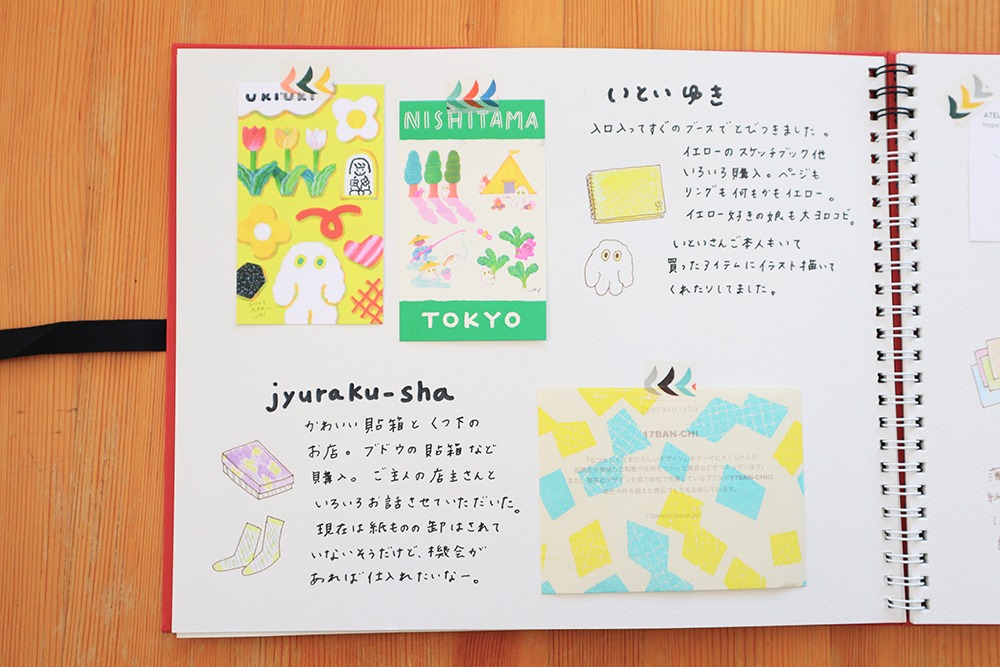 UKIUKI
NISHITAMA
TOKYO
いとい ゆき
入口入ってすぐのブースでとびつきました。
イエローのスケッチブック他
いろいろ購入。ページも
リングも何もかもイエロー。
イエロー好きの娘も大ヨロコビ。
いといさんご本人もいて
買ったアイテムにイラスト描いて
くれたりしました。
jyuraku-sha
かわいい貼箱とくつ下の
お店。ブドウの貼箱など
購入。ご主人の店主さんと
いろいろお話させていただいた。
現在は紙ものの卸はされて
いないそうだけど、機会が
あれば仕入れたいなー。
jyuraku-sha
17BAN-CHI
ATEL
https: